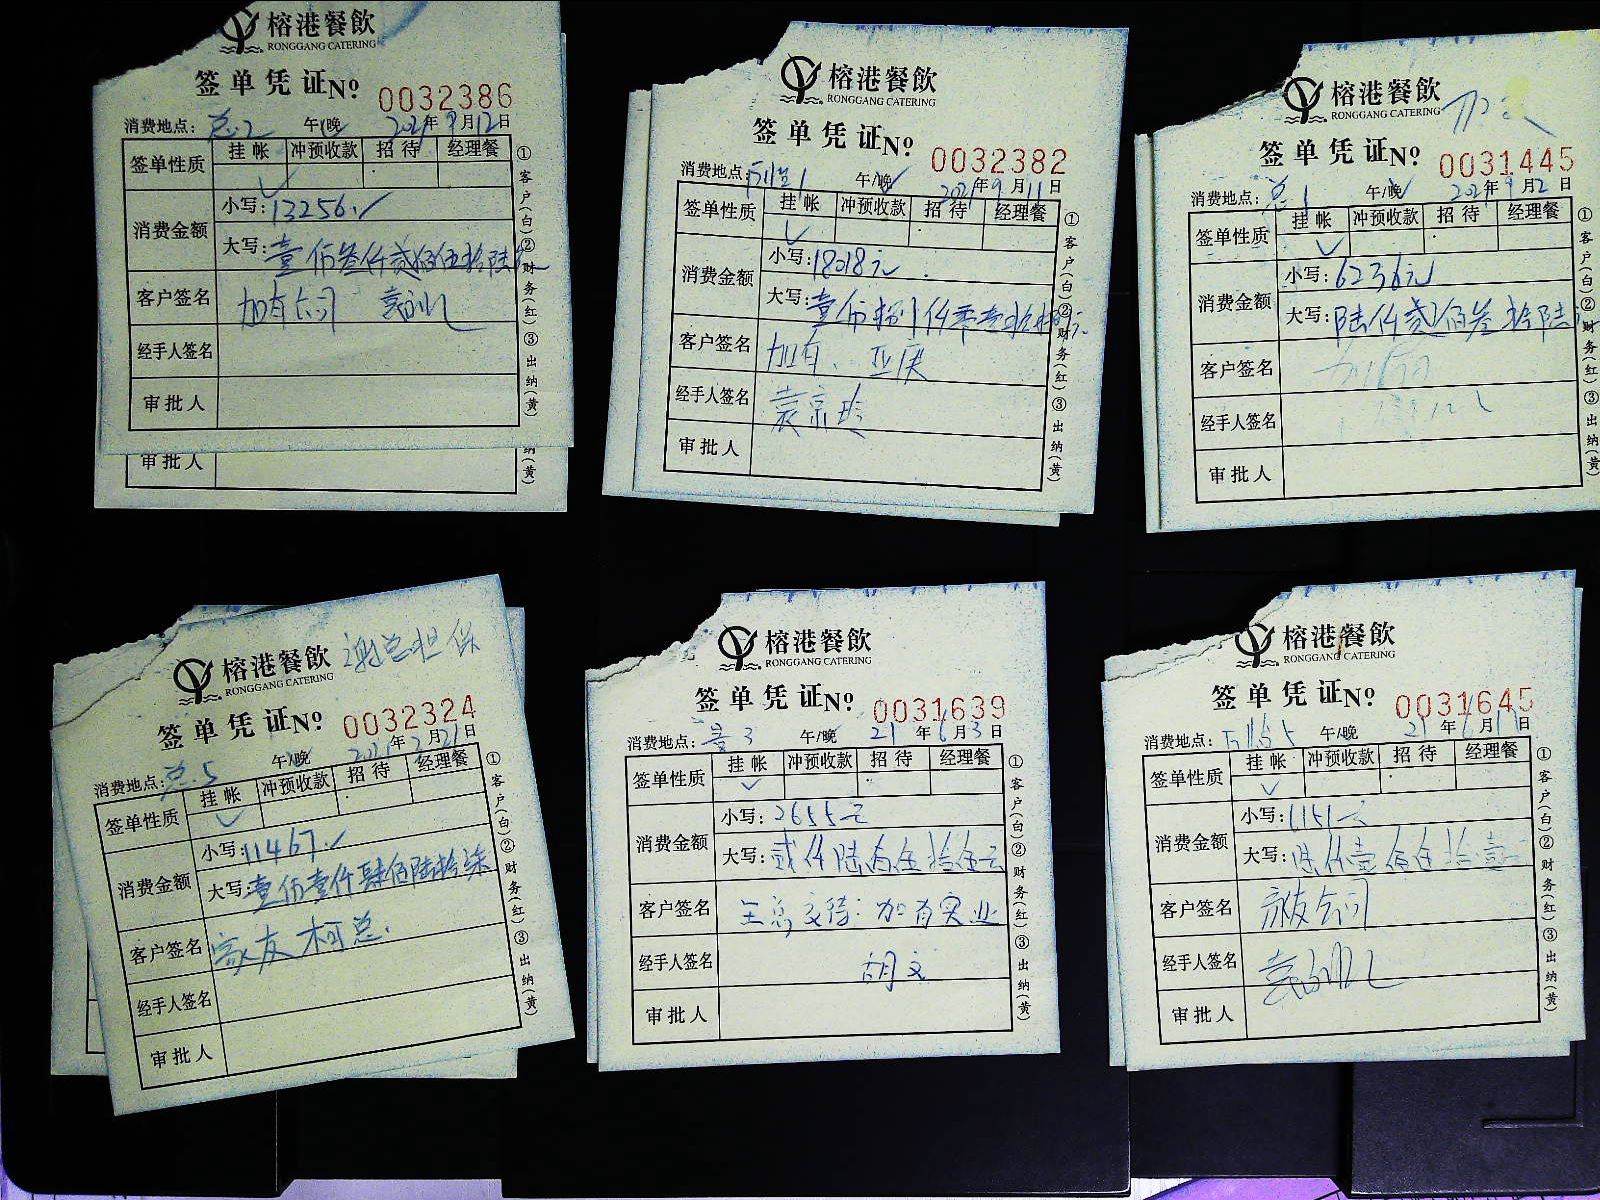 榕港餐飲
RONGGANG CATERING
签单凭证 Nº 0032386
消费地点: 总2 午/晚 2021年9月12日
签单性质 挂帐 冲预收款 招待 经理餐
消费金额 小写: 13256
大写: 壹万叁仟贰佰伍拾陆
客户签名
经手人签名
审批人
①客户(白)②财务(红)③出纳(黄)
审批人
榕港餐飲
RONGGANG CATERING
签单凭证 Nº 0032382
消费地点: 午/晚 2021年9月11日
签单性质 挂帐 冲预收款 招待 经理餐
消费金额 小写: 18018元
大写: 壹万捌仟零壹拾捌元
客户签名 加有、亚庆
经手人签名 袁京玲
审批人
①客户(白)②财务(红)③出纳(黄)
榕港餐飲
RONGGANG CATERING
签单凭证 Nº 0031445
消费地点: 总1 午/晚 2021年9月2日
签单性质 挂帐 冲预收款 招待 经理餐
消费金额 小写: 6236元
大写: 陆仟贰佰叁拾陆
客户签名
经手人签名
审批人
①客户(白)②财务(红)③出纳(黄)
榕港餐飲 谢总担保
RONGGANG CATERING
签单凭证 Nº 0032324
消费地点: 总5 午/晚 2021年 月21日
签单性质 挂帐 冲预收款 招待 经理餐
消费金额 小写: 11467
大写: 壹万壹仟肆佰陆拾柒
客户签名 家友 柯总
经手人签名
审批人
①客户(白)②财务(红)③出纳(黄)
榕港餐飲
RONGGANG CATERING
签单凭证 Nº 0031639
消费地点: 午/晚 21年6月3日
签单性质 挂帐 冲预收款 招待 经理餐
消费金额 小写: 2655元
大写: 贰仟陆佰伍拾伍元
客户签名 王总交待: 加有实业
经手人签名 胡文
审批人
①客户(白)②财务(红)③出纳(黄)
榕港餐飲
RONGGANG CATERING
签单凭证 Nº 0031645
消费地点: 午/晚 21年6月11日
签单性质 挂帐 冲预收款 招待 经理餐
消费金额 小写:
大写:
客户签名 家友公司
经手人签名
审批人
①客户(白)②财务(红)③出纳(黄)